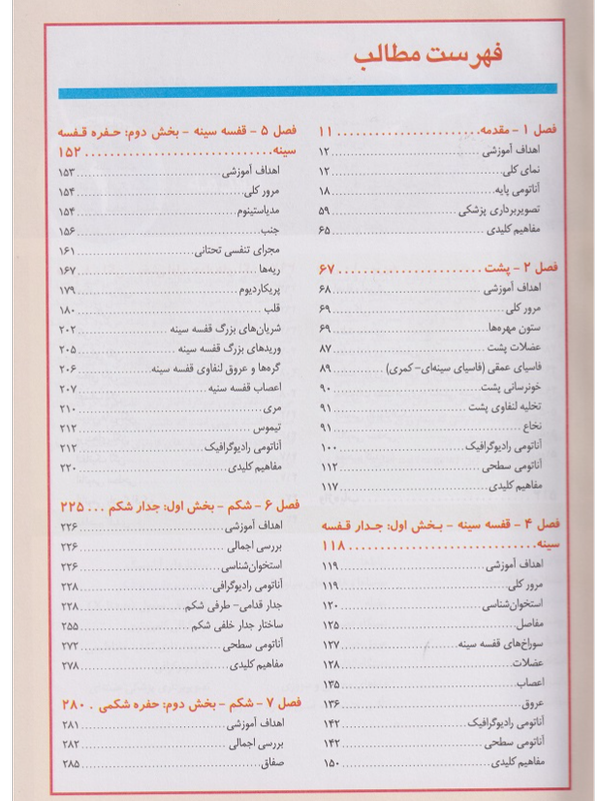 فهرست مطالب
فصل ۱ - مقدمه ...................... ۱۱
اهداف آموزشی ...................... ۱۲
نمای کلی ...................... ۱۲
آناتومی پایه ...................... ۱۸
تصویربرداری پزشکی ...................... ۵۹
مفاهیم کلیدی ...................... ۶۵
فصل ۲ - پشت ...................... ۶۷
اهداف آموزشی ...................... ۶۸
مرور کلی ...................... ۶۹
ستون مهره‌ها ...................... ۶۹
عضلات پشت ...................... ۸۷
فاسیای عمقی (فاسیای سینه‌ای- کمری) ...................... ۸۹
خونرسانی پشت ...................... ۹۰
تخلیه لنفاوی پشت ...................... ۹۱
نخاع ...................... ۹۱
آناتومی رادیوگرافیک ...................... ۱۰۰
آناتومی سطحی ...................... ۱۱۲
مفاهیم کلیدی ...................... ۱۱۷
فصل ۴ - قفسه سینه - بخش اول: جدار قفسه
سینه ...................... ۱۱۸
اهداف آموزشی ...................... ۱۱۹
مرور کلی ...................... ۱۱۹
استخوان‌شناسی ...................... ۱۲۰
مفاصل ...................... ۱۲۵
سوراخ‌های قفسه سینه ...................... ۱۲۷
عضلات ...................... ۱۲۸
اعصاب ...................... ۱۳۵
عروق ...................... ۱۳۶
آناتومی رادیوگرافیک ...................... ۱۴۲
آناتومی سطحی ...................... ۱۴۲
مفاهیم کلیدی ...................... ۱۵۰
فصل ۵ - قفسه سینه - بخش دوم: حفره قفسه
سینه ...................... ۱۵۲
اهداف آموزشی ...................... ۱۵۳
مرور کلی ...................... ۱۵۴
مدیاستینوم ...................... ۱۵۴
جنب ...................... ۱۵۶
مجرای تنفسی تحتانی ...................... ۱۶۱
ریه‌ها ...................... ۱۶۷
پریکاردیوم ...................... ۱۷۹
قلب ...................... ۱۸۰
شریان‌های بزرگ قفسه سینه ...................... ۲۰۲
وریدهای بزرگ قفسه سینه ...................... ۲۰۵
گره‌ها و عروق لنفاوی قفسه سینه ...................... ۲۰۶
اعصاب قفسه سنیه ...................... ۲۰۷
مری ...................... ۲۱۰
تیموس ...................... ۲۱۲
آناتومی رادیوگرافیک ...................... ۲۱۲
مفاهیم کلیدی ...................... ۲۲۰
فصل ۶ - شکم - بخش اول: جدار شکم .... ۲۲۵
اهداف آموزشی ...................... ۲۲۶
بررسی اجمالی ...................... ۲۲۶
استخوان‌شناسی ...................... ۲۲۶
آناتومی رادیوگرافی ...................... ۲۲۸
جدار قدامی- طرفی شکم ...................... ۲۲۸
ساختار جدار خلفی شکم ...................... ۲۵۵
آناتومی سطحی ...................... ۲۷۲
مفاهیم کلیدی ...................... ۲۷۸
فصل ۷ - شکم - بخش دوم: حفره شکمی . ۲۸۰
اهداف آموزشی ...................... ۲۸۱
بررسی اجمالی ...................... ۲۸۲
صفاق ...................... ۲۸۵